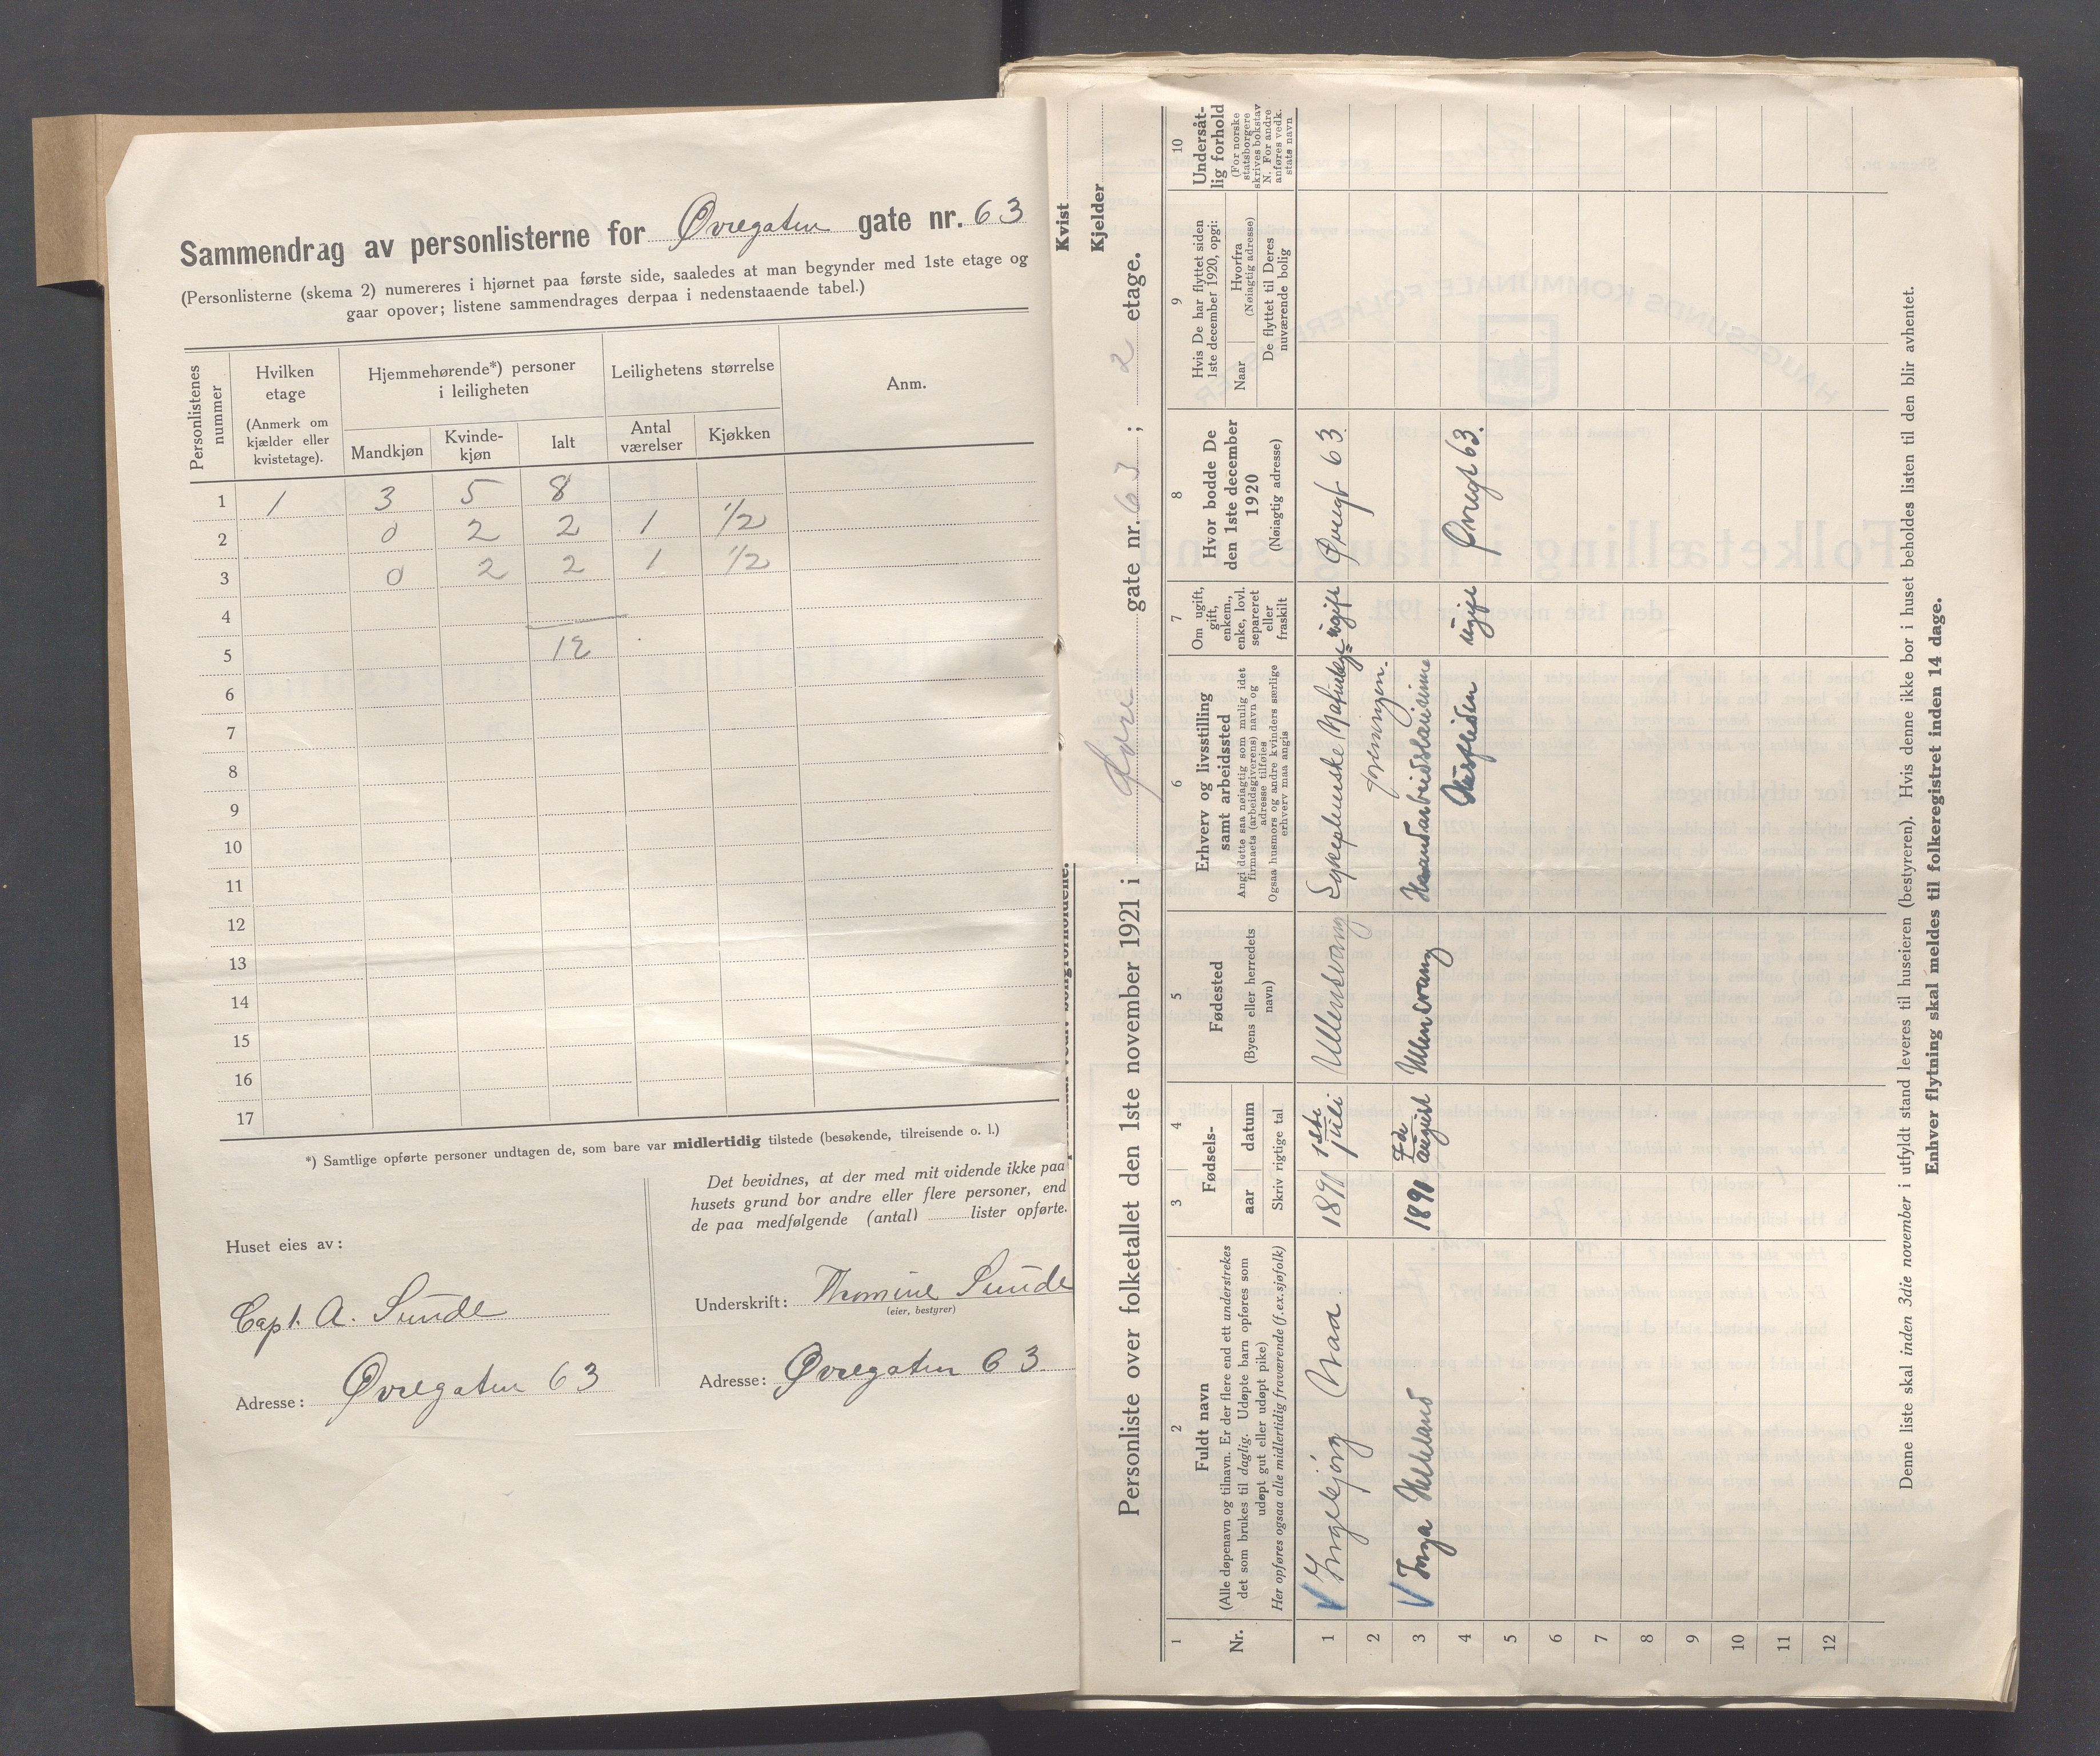 Sammendrag av personlisterne for Øvregaten gate nr. 63
(Personlisterne (skema 2) numereres i hjørnet paa første side, saaledes at man begynder med 1ste etage og
gaar opover; listene sammendrages derpaa i nedenstaaende tabel.)
Personlistenes nummer
Hvilken etage
(Anmerk om kjælder eller kvistetage).
Hjemmehørende*) personer i leiligheten
Mandkjøn
Kvinde-kjøn
Ialt
Leilighetens størrelse
Antal værelser
Kjøkken
Anm.
1 1 3 5 8
2 0 2 2 1 1/2
3 0 2 2 1 1/2
4
5 12
6
7
8
9
10
11
12
13
14
15
16
17
*) Samtlige opførte personer undtagen de, som bare var midlertidig tilstede (besøkende, tilreisende o. l.)
Det bevidnes, at der med mit vidende ikke paa
husets grund bor andre eller flere personer, end
de paa medfølgende (antal) lister opførte.
Huset eies av:
Capt. A. Sunde
Adresse: Øvregaten 63
Underskrift: Thomine Sunde
(eier, bestyrer)
Adresse: Øvregaten 63
Kvist
Kjelder
Personliste over folketallet den 1ste november 1921 i Øvre gate nr. 63; 2 etage.
1
Nr.
2
Fuldt navn
(Alle døpenavn og tilnavn. Er der flere end ett understrekes
det som brukes til daglig. Udøpte barn opføres som
udøpt gut eller udøpt pike)
Her opføres ogsaa alle midlertidig fraværende (f.ex. sjøfolk)
3 4
Fødsels-
aar datum
Skriv rigtige tal
5
Fødested
(Byens eller herredets
navn)
6
Erhverv og livsstilling
samt arbeidssted
Angi dette saa nøiagtig som mulig idet
firmaets (arbeidsgiverens) navn og
adresse tilføies
Ogsaa husmors og andre kvinders særlige
erhverv maa angis
7
Om ugift,
gift,
enkem.,
enke, lovl.
separeret
eller
fraskilt
8
Hvor bodde De
den 1ste december
1920
(Nøiagtig adresse)
9
Hvis De har flyttet siden
1ste december 1920, opgi:
Naar
Hvorfra
(Nøiagtig adresse)
De flyttet til Deres
nuværende bolig
10
Undersåt-
lig forhold
(For norske
statsborgere
skrives bokstav
N. For andre
anføres vedk.
stats navn
1 Ingebjørg Aaa 1891 1ste juli Ullensvang Sykepleierske ugift Øvregt 63
2 foreningen.
3 Inga Helland 1891 7de august Ullensvang Haandarbeidslærerinne
4 Husfliden ugift Øvregt 63.
5
6
7
8
9
10
11
12
Denne liste skal inden 3die november i utfyldt stand leveres til huseieren (bestyreren). Hvis denne ikke bor i huset beholdes listen til den blir avhentet.
Enhver flytning skal meldes til folkeregistret inden 14 dage.